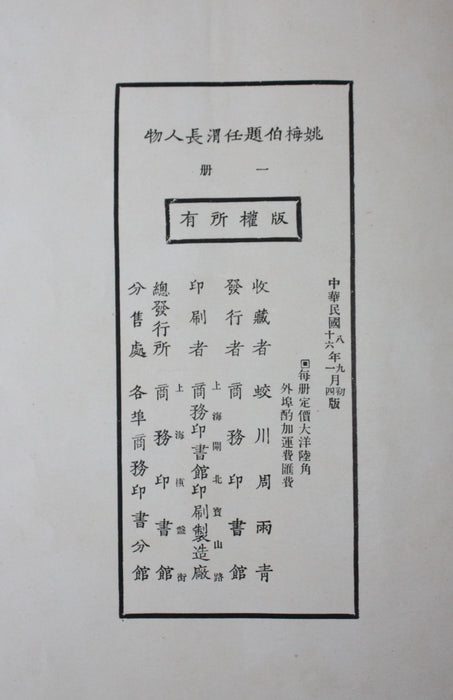 姚梅伯題任渭長人物
一册
版權所有
中華民國八年九月初版
十六年一月四版
▣每册定價大洋陸角
外埠酌加運費匯費
收藏者 蛟川周雨青
發行者 商務印書館
上海閘北寶山路
印刷者 商務印書館印刷製造廠
上海棋盤街
總發行所 商務印書館
分售處 各埠商務印書分館